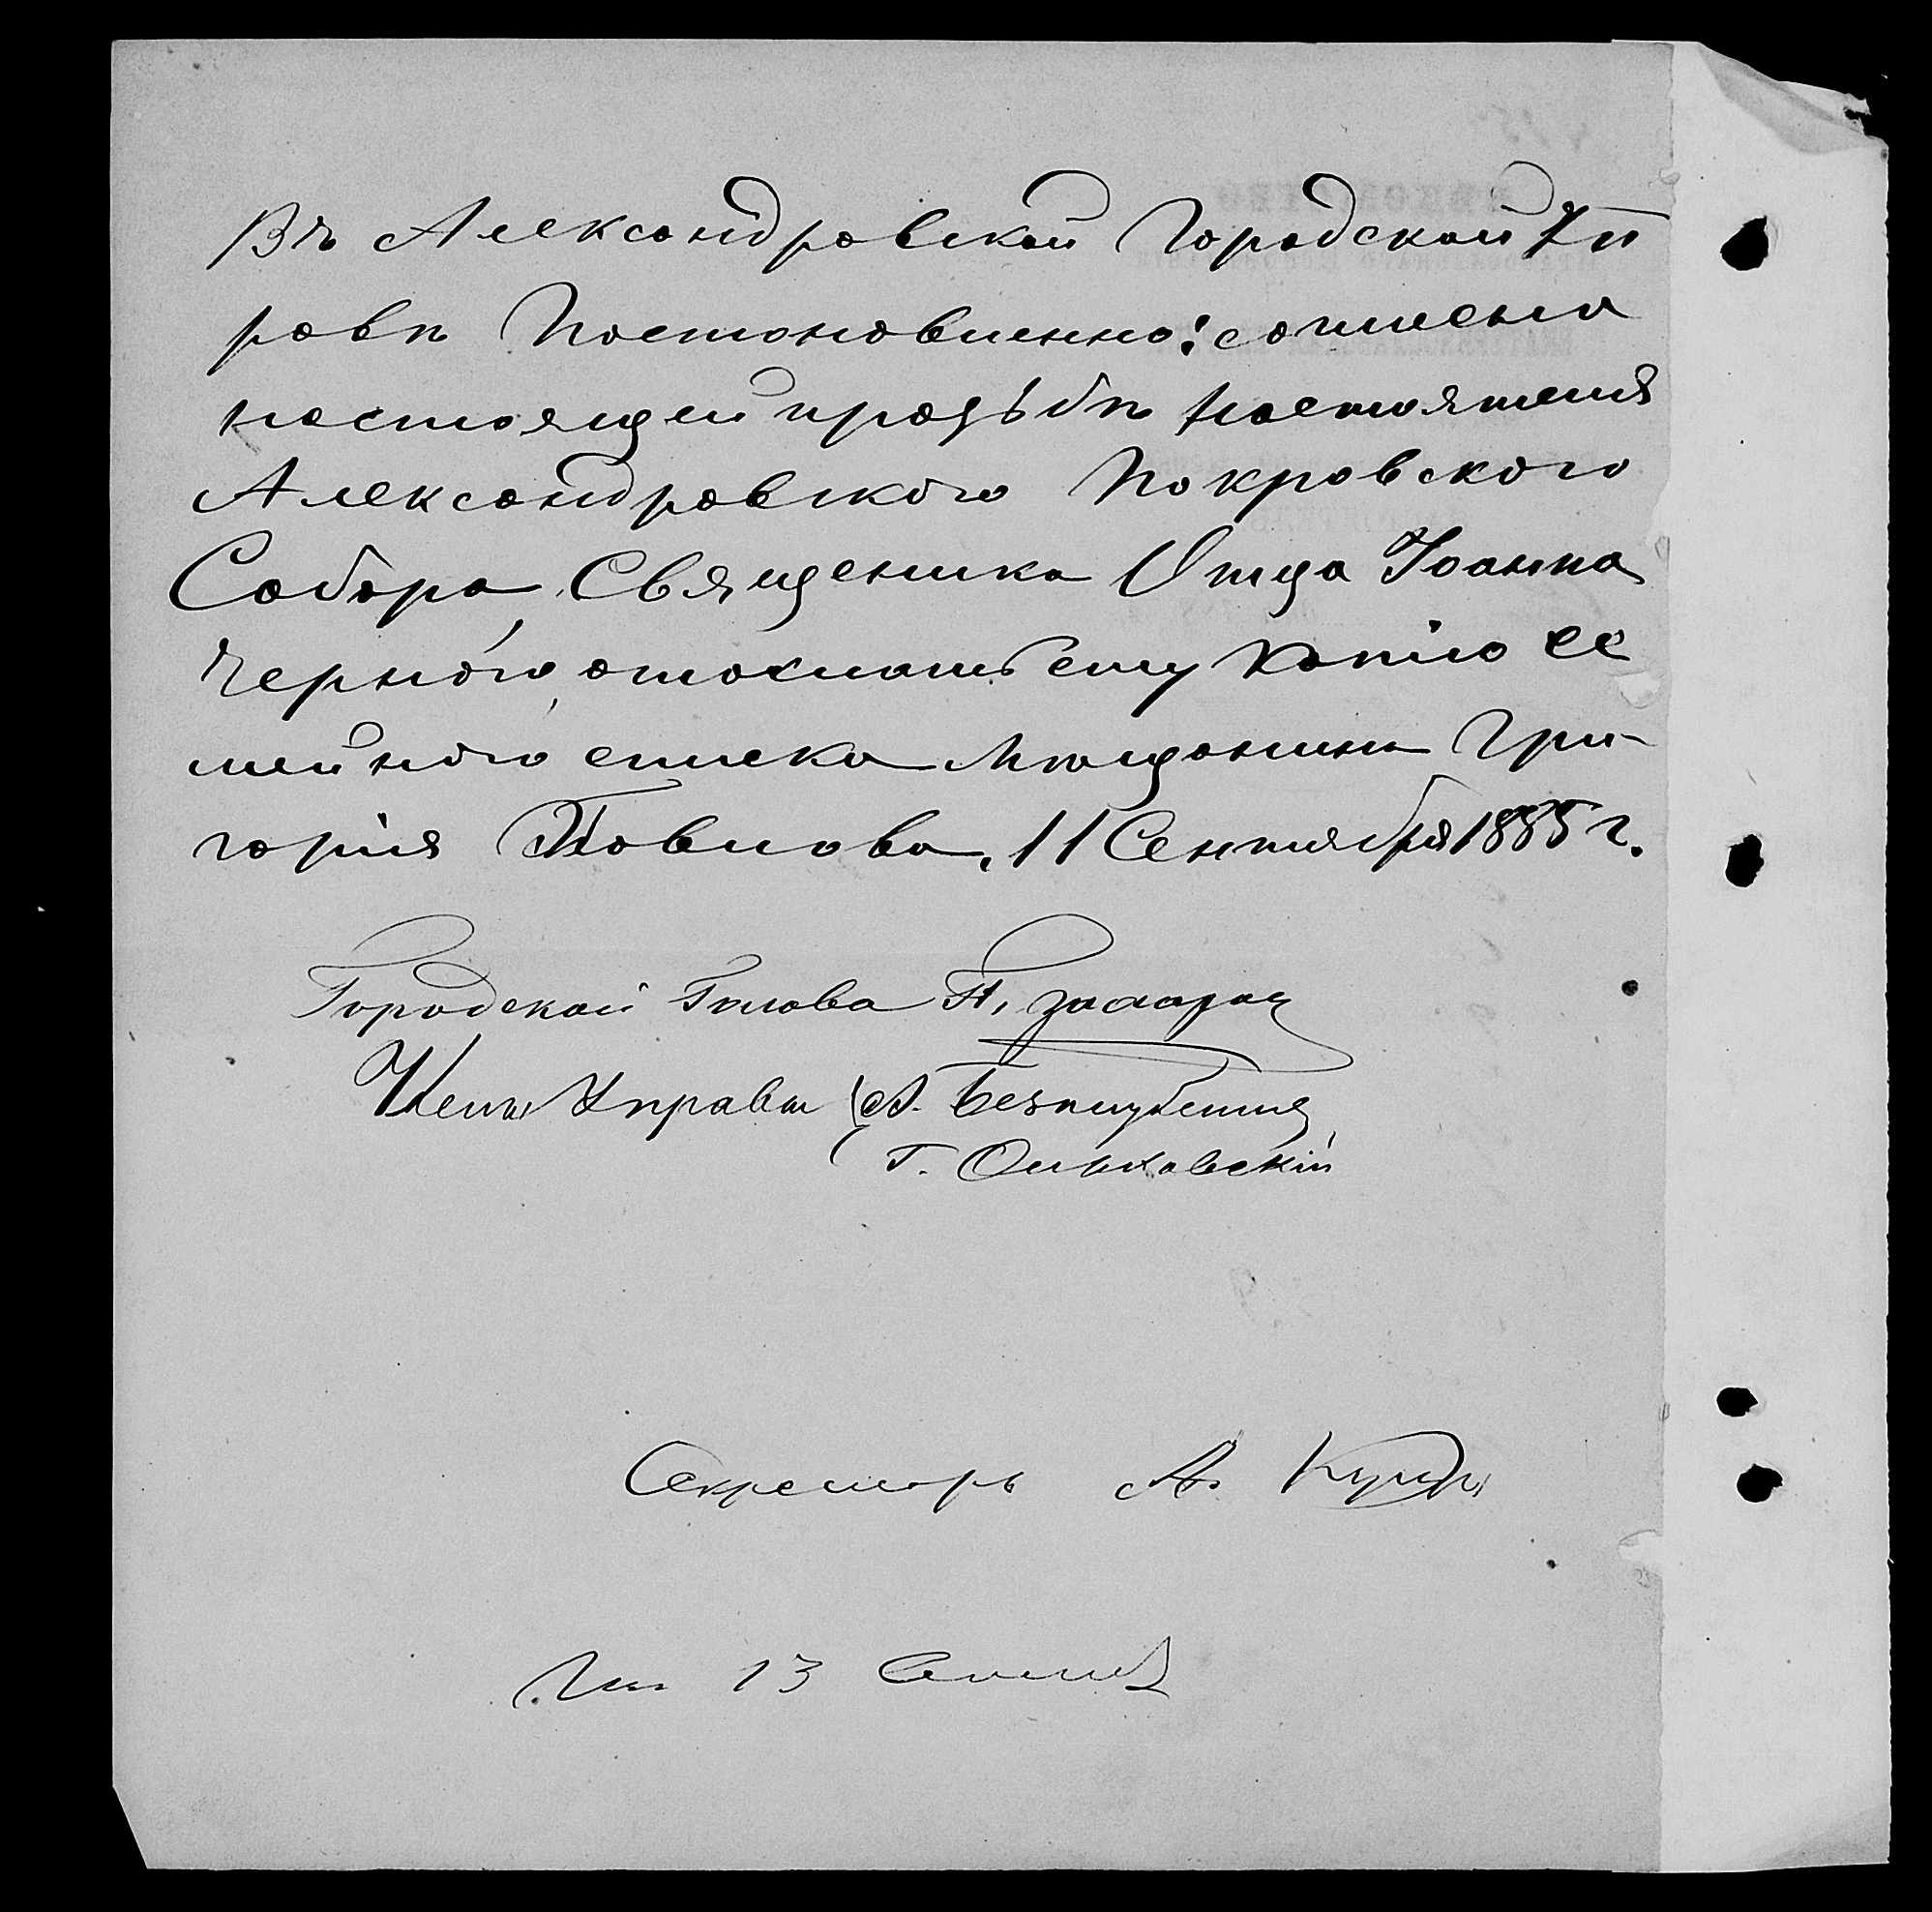 Въ Александровской Городской Уп
равѣ Постановленно: согласно
настоящей прозьбѣ настоятеля
Александровского Покровского
Собора, Священика Отца Іоанна
Черного, отослать ему копію се
мейного списка Мѣщанина Гри-
горія Павлова, 11 Сентября 1885 г.
Городской Голова
Члены Управы
Г. Ольховскій
Секретарь А.
13